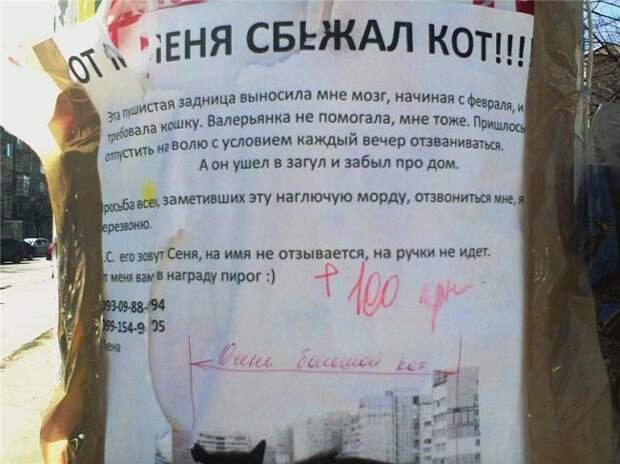 ОТ МЕНЯ СБЕЖАЛ КОТ!!!!
Эта пушистая задница выносила мне мозг, начиная с февраля, и
требовала кошку. Валерьянка не помогала, мне тоже. Пришлось
отпустить на волю с условием каждый вечер отзваниваться.
А он ушел в загул и забыл про дом.
Просьба всех, заметивших эту наглючую морду, отзвониться мне, я
перезвоню.
.С. его зовут Сеня, на имя не отзывается, на ручки не идет.
от меня вам в награду пирог :)
+ 100 грн
093-09-88- 94
099-154-9 05
Очень большой кот